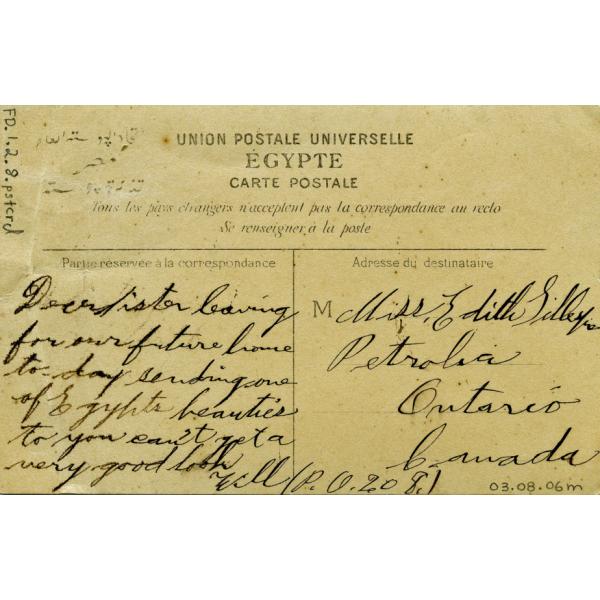 FD.1.2.8.pstcrd
UNION POSTALE UNIVERSELLE
ÉGYPTE
CARTE POSTALE
Tous les pays étrangers n'acceptent pas la correspondance au recto
Se renseigner à la poste
Partie réservée à la correspondance
Dear sister leaving
for our future home
to-day sending one
of Egypts beauties
to you can't get a
very good look
Will
Adresse du destinataire
M Miss. Edith
Petrolia
Ontario
Canada
(P. O. 208.)
03.08.06m